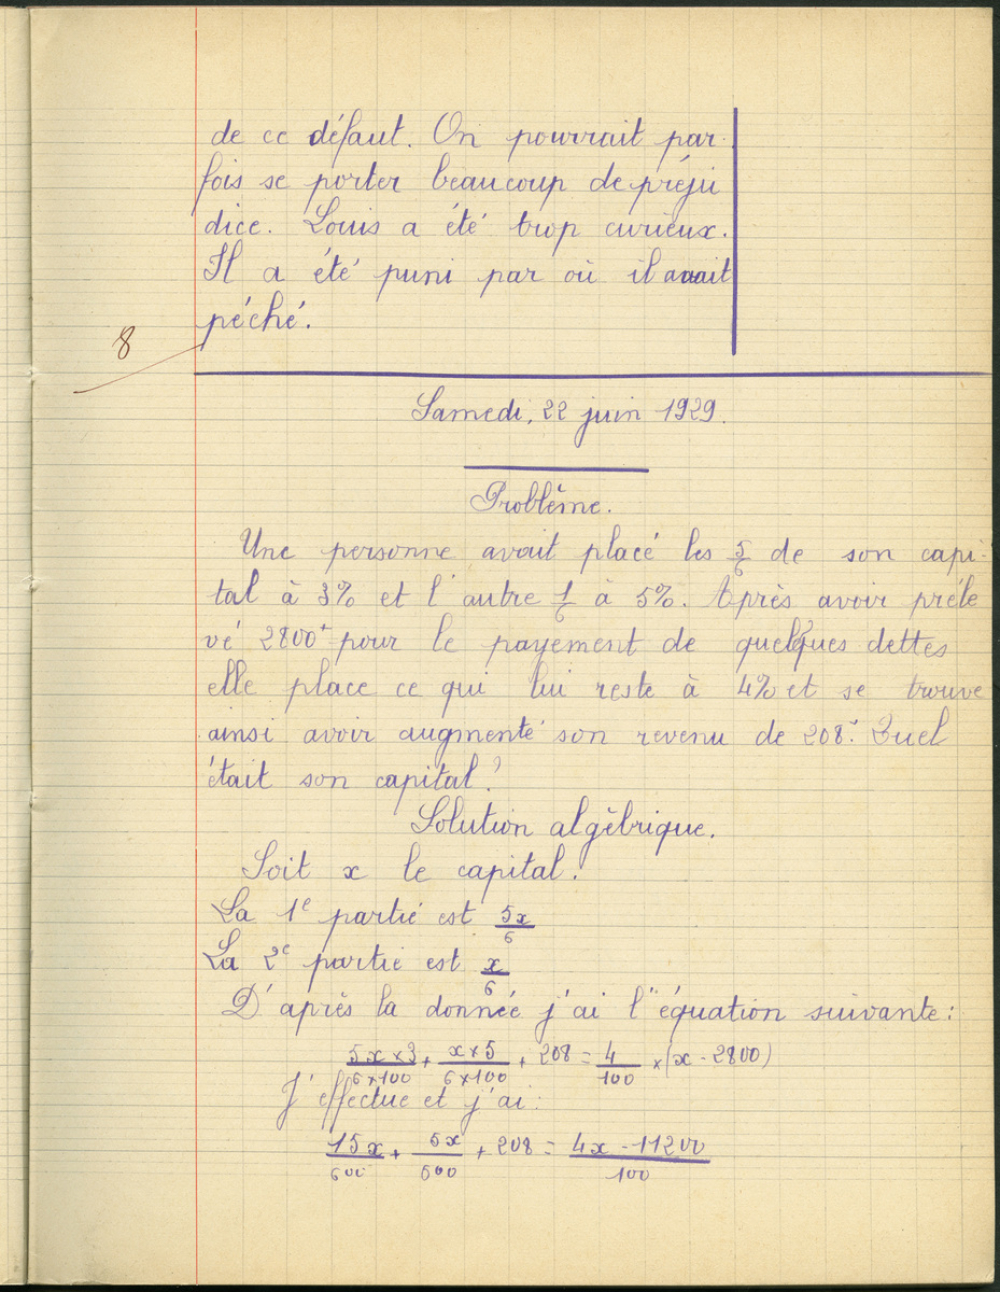 de ce défaut. On pourrait par-
fois se porter beaucoup de préju
dice. Louis a été trop curieux.
Il a été puni par où il avait
péché.
8
Samedi, 22 juin 1929.
Problème.
Une personne avait placé les 5/6 de son capi-
tal à 3% et l'autre 1/6 à 5%. Après avoir préle
vé 2800f pour le payement de quelques dettes
elle place ce qui lui reste à 4% et se trouve
ainsi avoir augmenté son revenu de 208f. Quel
était son capital?
Solution algébrique.
Soit x le capital.
La 1e partie est 5x/6
La 2e partie est x/6
D'après la donnée j'ai l'équation suivante:
5x×3/6×100 + x×5/6×100 + 208 = 4/100 × (x - 2800)
J'effectue et j'ai:
15x/600 + 5x/600 + 208 = 4x - 11200/100